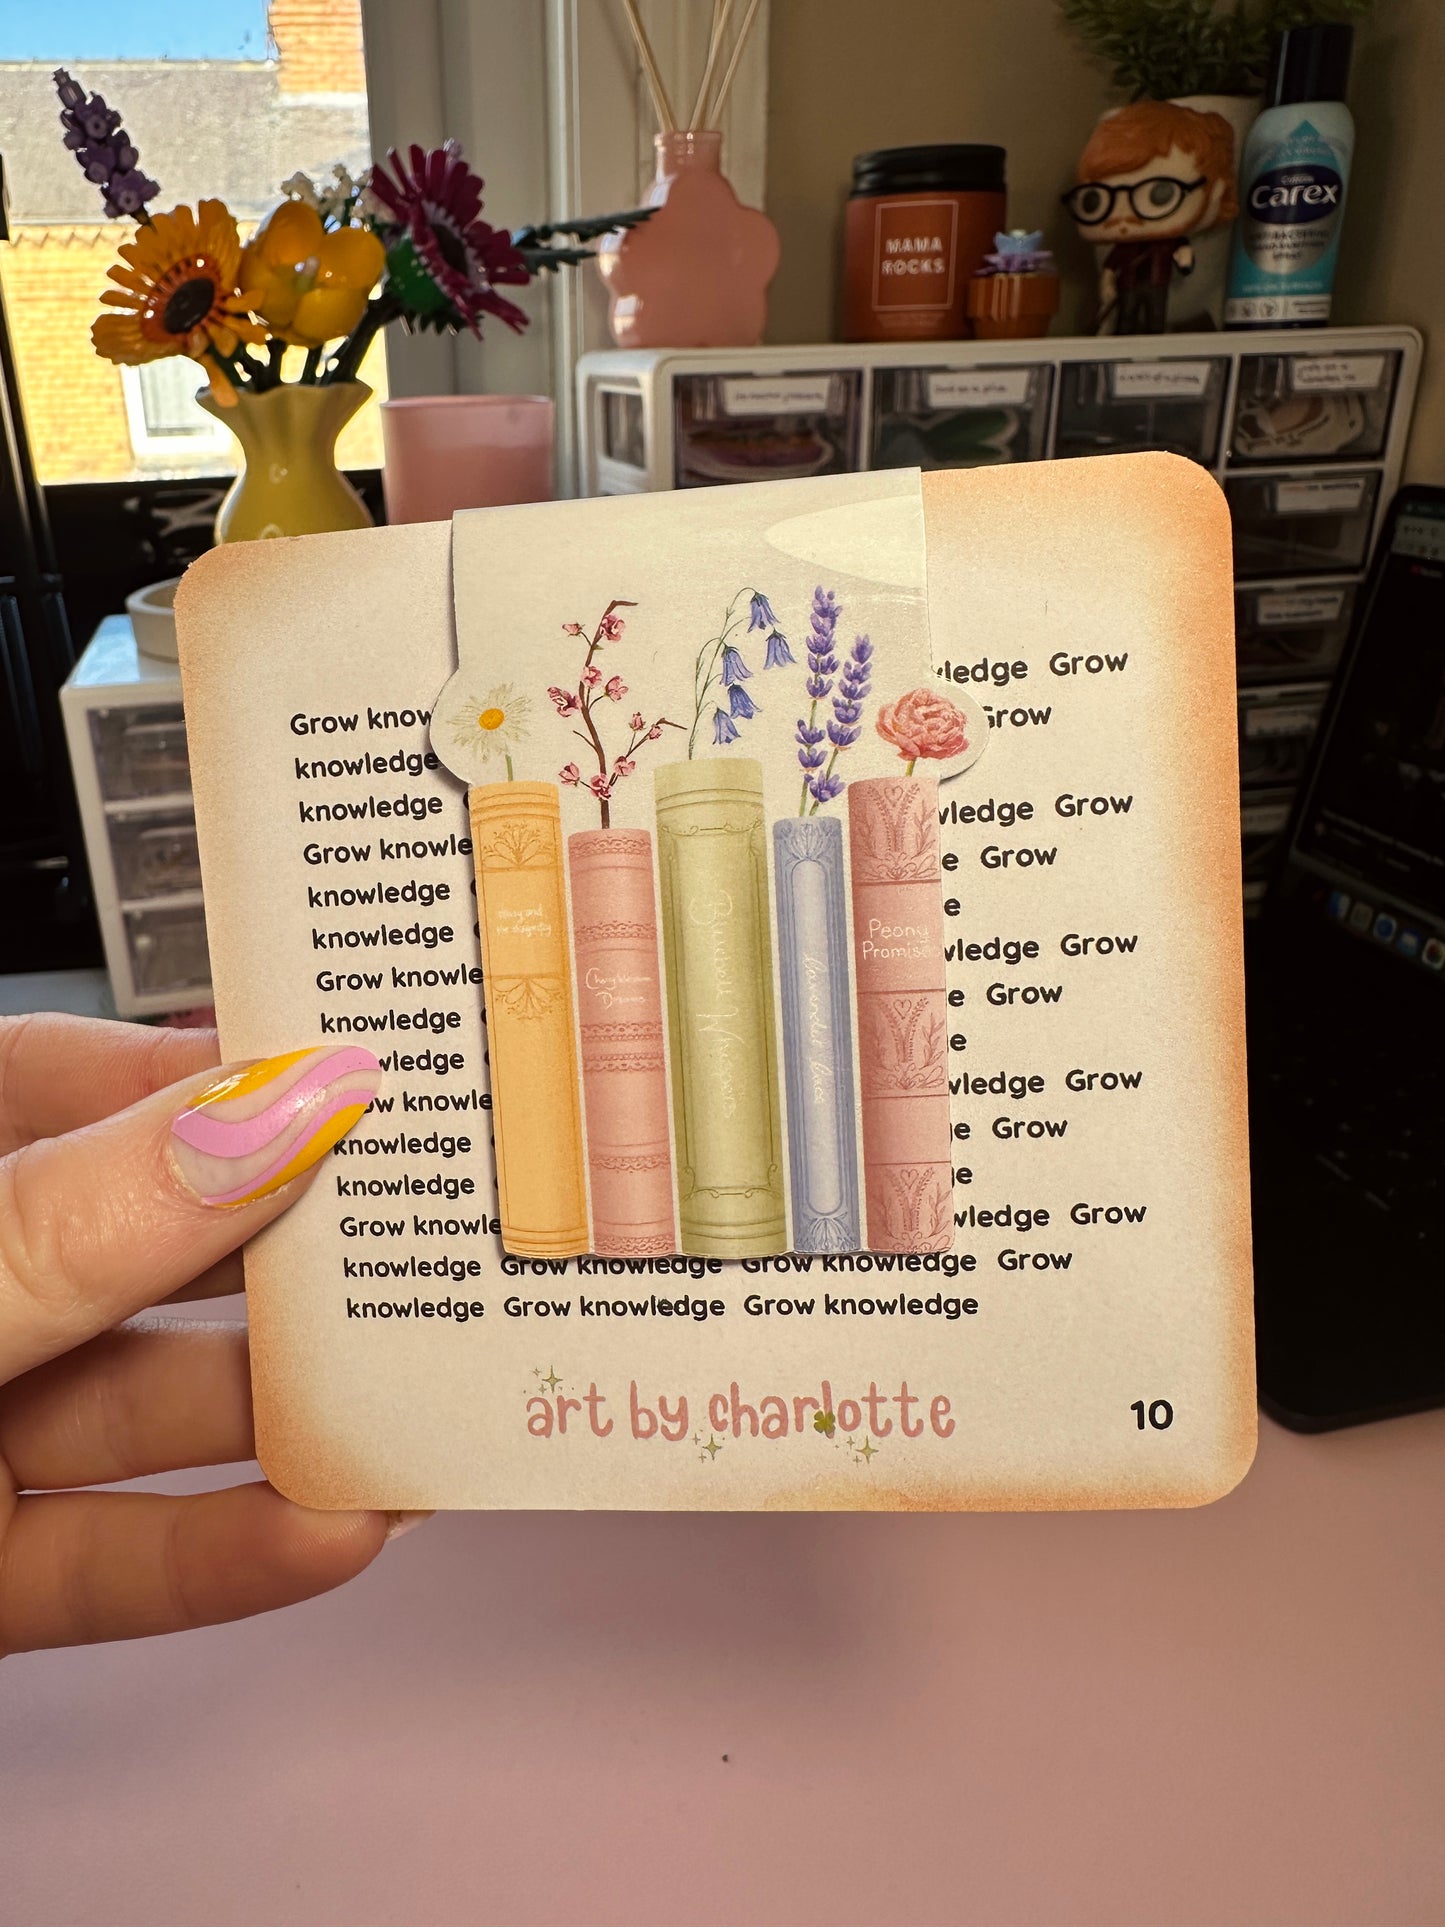 MAMA
ROCKS
Carex
wledge Grow
Grow know
Grow
knowledge
knowledge
wledge Grow
Grow knowle
e Grow
knowledge
e
knowledge
wledge Grow
Grow knowle
e Grow
knowledge
e
wledge
wledge Grow
ow knowle
ge Grow
knowledge
ge
knowledge
wledge Grow
Grow knowle
knowledge Grow knowledge Grow knowledge Grow
knowledge Grow knowledge Grow knowledge
Daisy and
the dragonfly
Cherry blossom
Dreams
Bluebell Whispers
Lavender Lines
Peony
Promise
art by charlotte
10